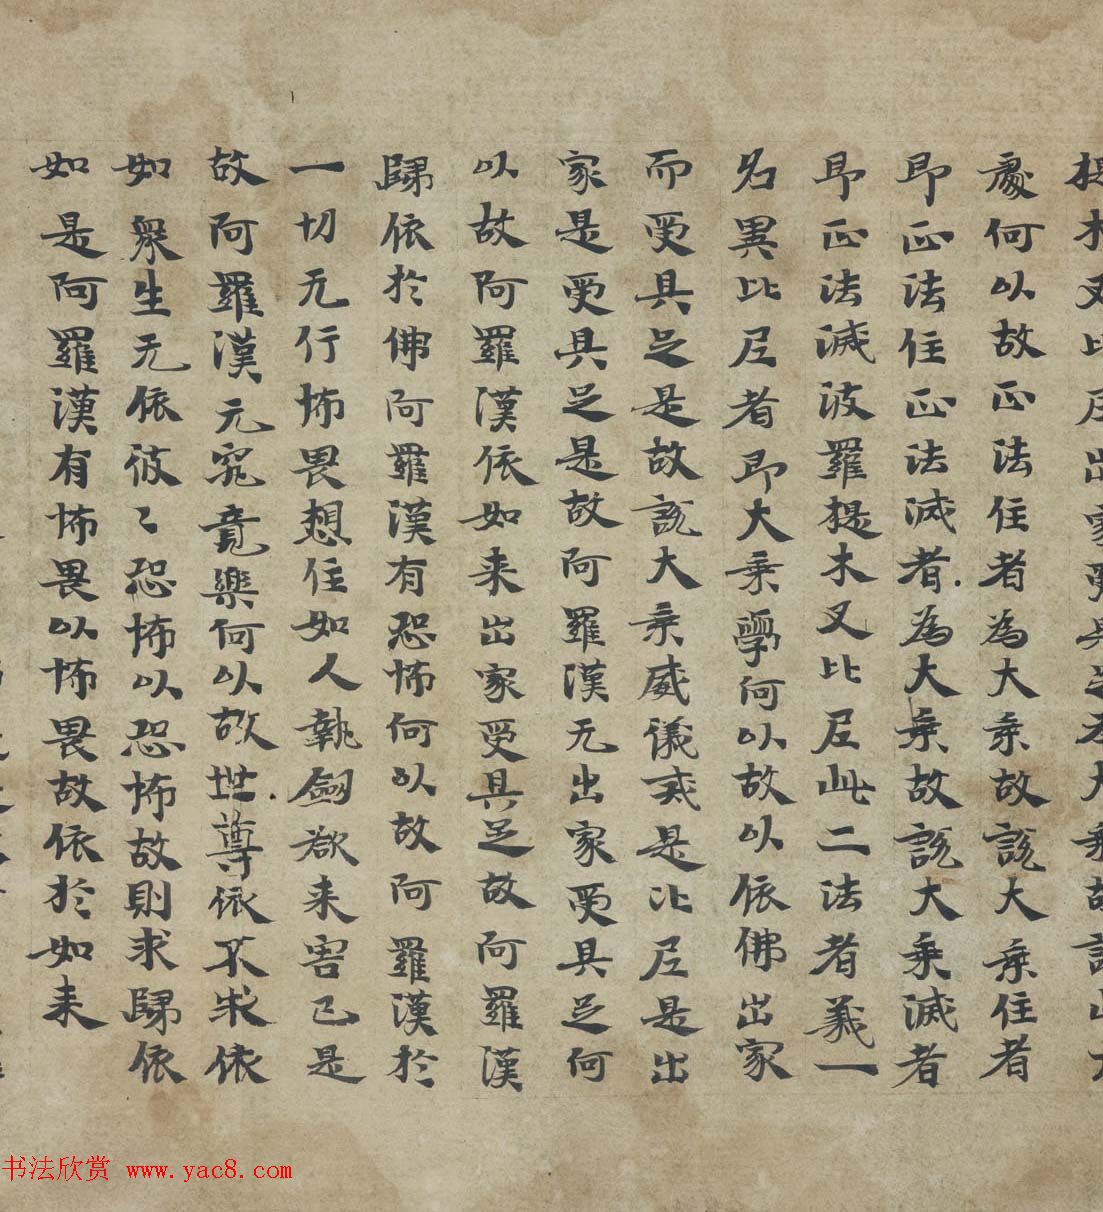 提木叉比尼出家受具足為大乘故說此六
處何以故正法住者為大乘故說大乘住者
即正法住正法滅者為大乘故說大乘滅者
即正法滅波羅提木叉比尼此二法者義一
名異比尼者即大乘學何以故以依佛出家
而受具足是故說大乘威儀戒是比尼是出
家是受具足是故阿羅漢无出家受具足何
以故阿羅漢依如来出家受具足故阿羅漢
歸依於佛阿羅漢有恐怖何以故阿羅漢於
一切无行怖畏想住如人執劒欲来害己是
故阿羅漢无究竟樂何以故世尊依不求依
如衆生无依彼〻恐怖以恐怖故則求歸依
如是阿羅漢有怖畏以怖畏故依於如来
书法欣赏 www.yac8.com